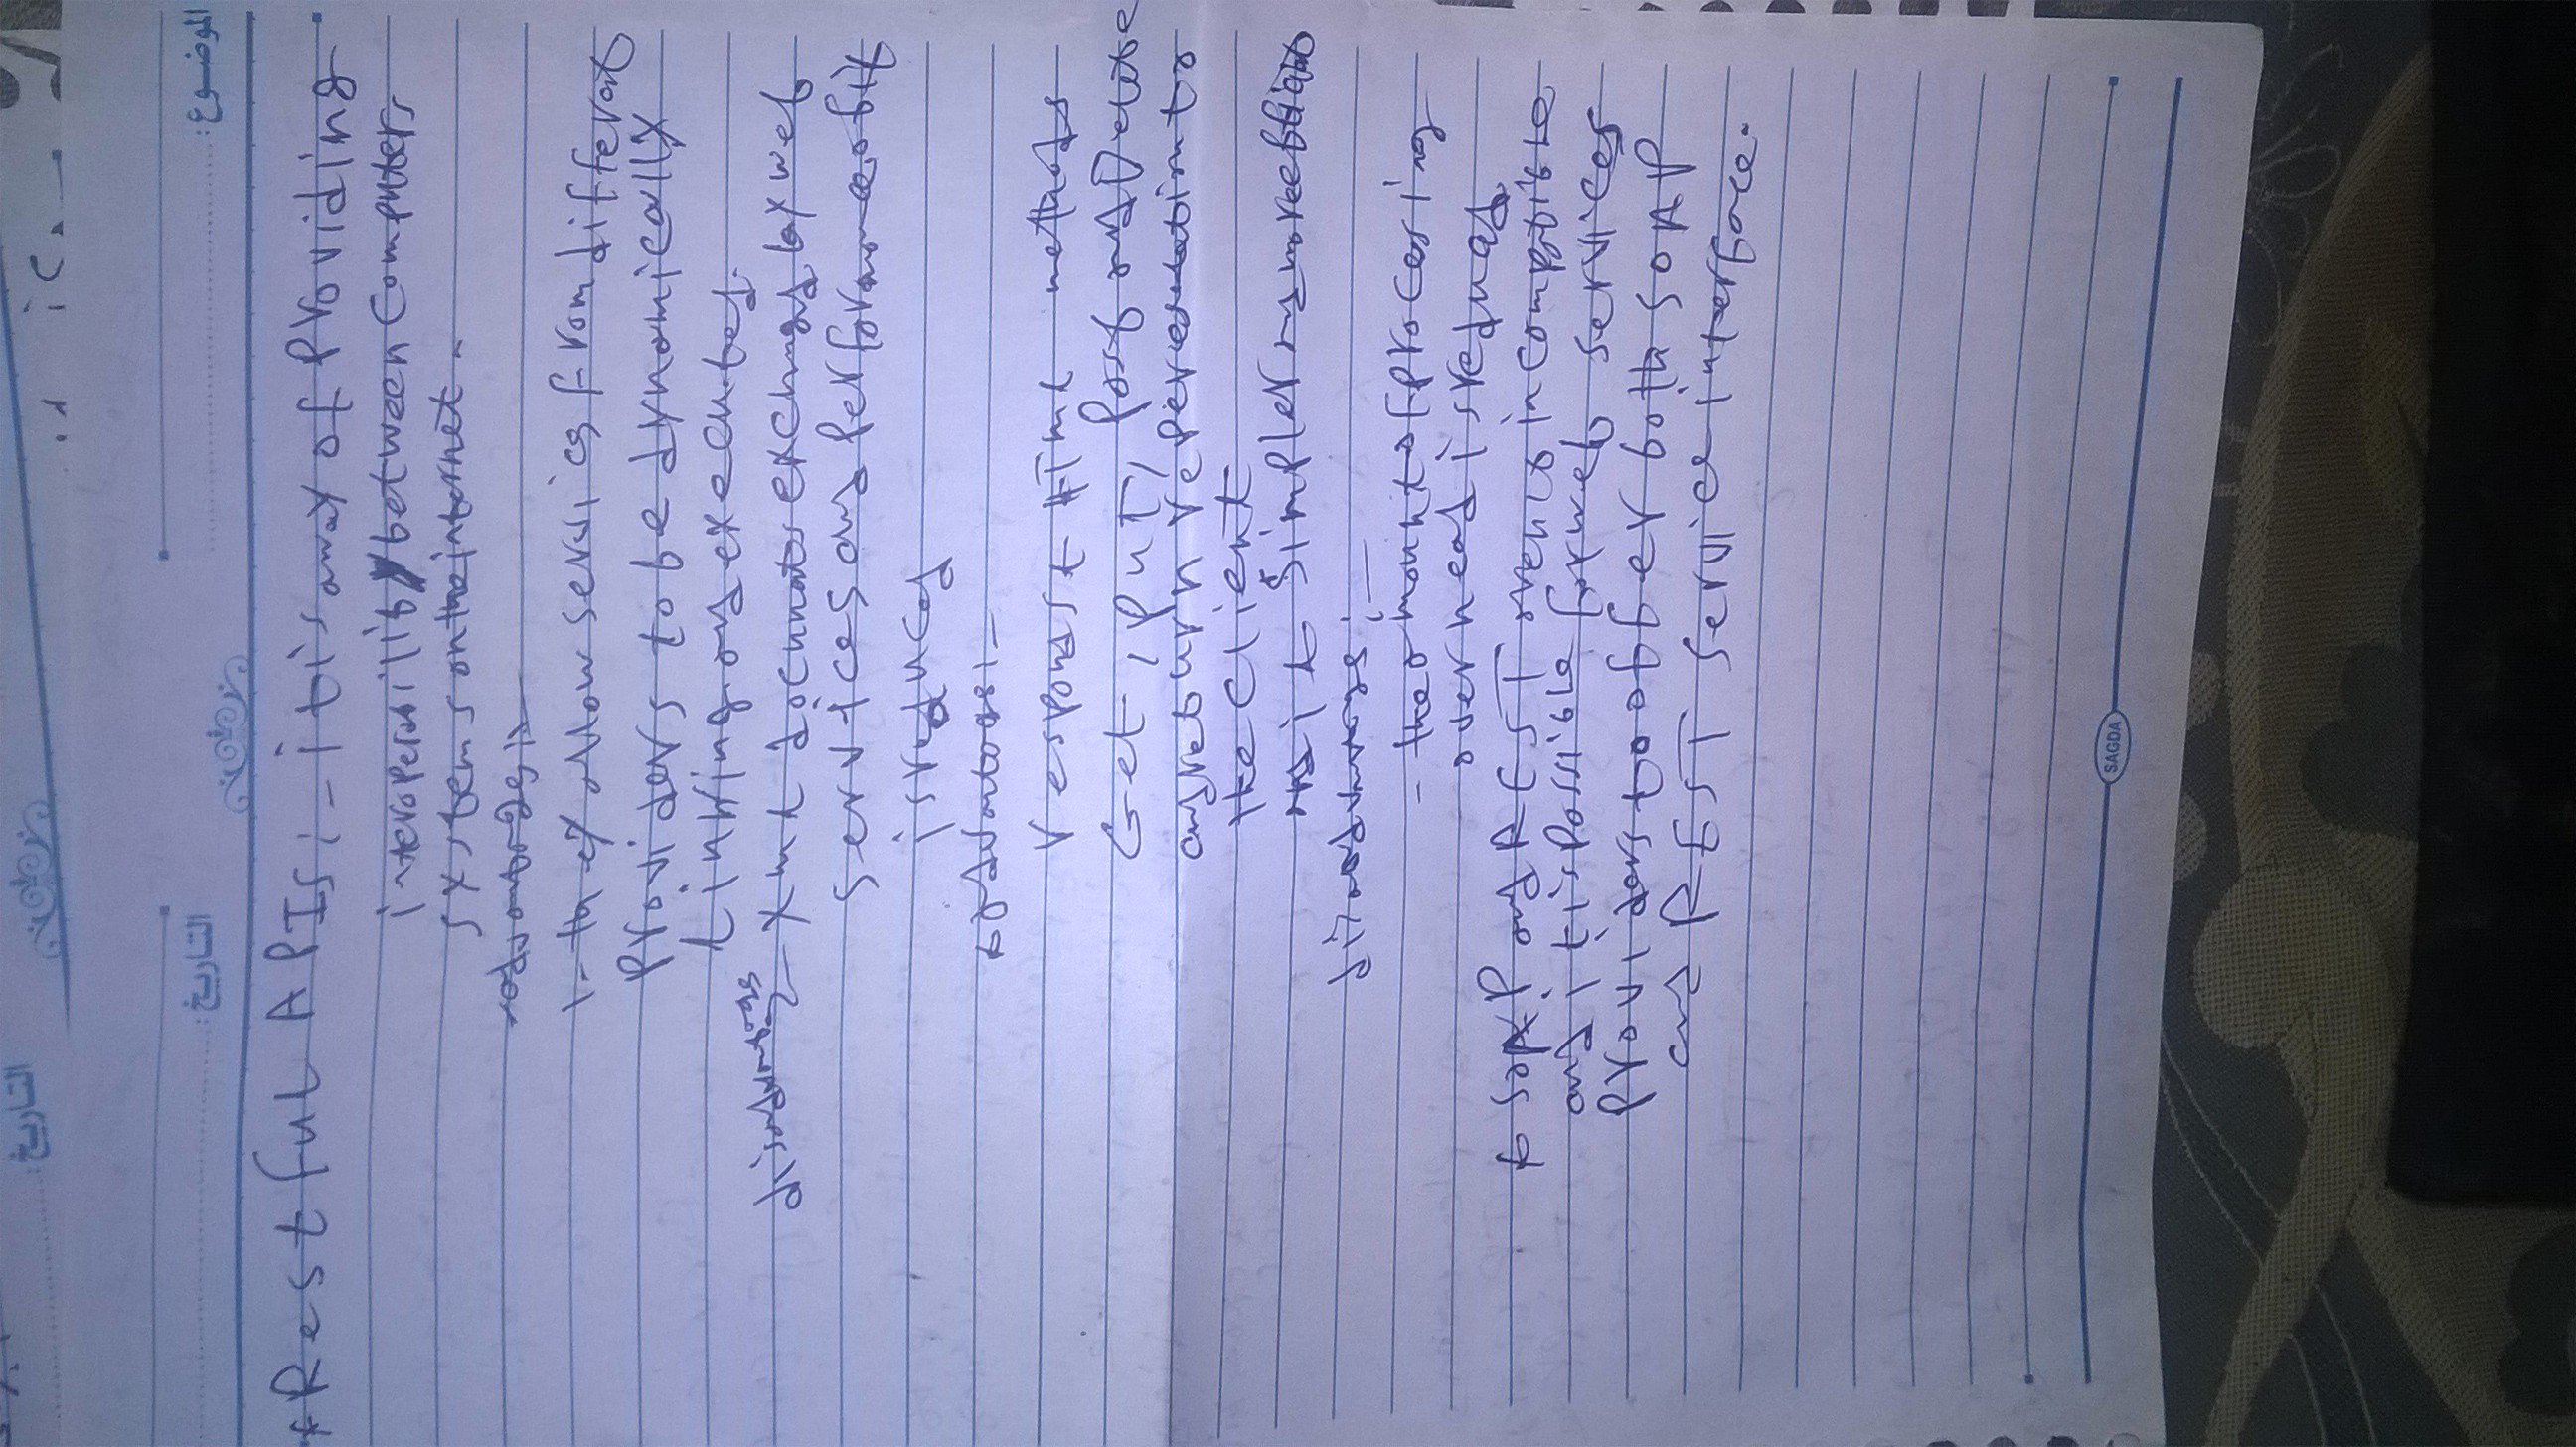 التاريخ:
الموضوع:
التاريخ:
*Restful APIs:- it is a way of Providing
interoperability between Computers
systems on the internet.
advantages:-
1- they allow services from different
Providers to be dynamically
Linking and executed.
disadvantages
- XML documents exchanged by web
services and Performance of it
is reduced
* advantages:-
HTML methods
Get, PUT, Post and Delete
and return reperesentation to
the client
it simpler and more efficient
disadvantages:-
- the amount of processing
overhead is reduced
* SOAP and REST incompatible
and it is Possible for web services
Providers to offer both SOAP
and REST service interface.
SAGDA